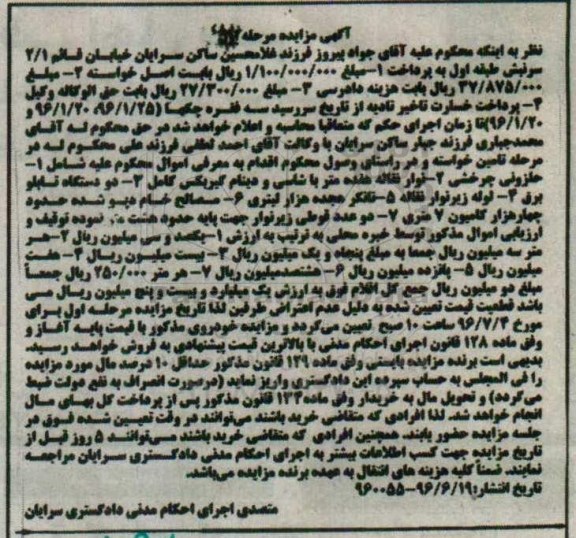 آگهی مزایده مرحله اول
نظر به اینکه محکوم علیه آقای جواد پیروز فرزند غلامحسین ساکن سرایان خیابان قائم ۲/۱
سرنبش طبقه اول به پرداخت ۱-مبلغ ۱/۱۰۰/۰۰۰/۰۰۰ ریال بابت اصل خواسته ۲- مبلغ
۳۷/۸۷۵/۰۰۰ ریال بابت هزینه دادرسی ۳- مبلغ ۲۷/۳۰۰/۰۰۰ ریال بابت حق الوکاله وکیل
۴- پرداخت خسارت تاخیر تادیه از تاریخ سررسید سه فقره چکها (۹۶/۱/۲۵، ۹۶/۱/۲۰ و
۹۶/۱/۲۰)تا زمان اجرای حکم که متعاقبا محاسبه و اعلام خواهد شد در حق محکوم له آقای
محمدجباری فرزند جبار ساکن سرایان با وکالت آقای احمد لطفی فرزند علی محکوم له در
مرحله تامین خواسته و در راستای وصول محکوم اقدام به معرفی اموال محکوم علیه شامل ۱-
حلزونی چرخشی ۲-نوار نقاله هفده متر با شاسی و دینام گیربکس کامل ۳- دو دستگاه تابلو
برق ۴- لوله زیرنوار نقاله ۵-تانکر هجده هزار لیتری ۶- مصالح خام دپو شده حدود
چهارهزار کامیون ۷ متری ۷- دو عدد قوطی زیرنوار جهت پایه حدود هشت متر نموده توقیف و
ارزیابی اموال مذکور توسط خبره محلی به ترتیب به ارزش ۱-یکصد و سی میلیون ریال ۲-هر
متر سه میلیون ریال جمعا به مبلغ پنجاه و یک میلیون ریال ۳- بیست میلیون ریال ۴- هفت
میلیون ریال ۵- پانزده میلیون ریال ۶- هشتصدمیلیون ریال ۷- هر متر ۲۵۰/۰۰۰ ریال جمعاً
مبلغ دو میلیون ریال جمع کل اقلام فوق به ارزش یک میلیارد و بیست و پنج میلیون ریال می
باشد قطعیت قیمت تعیین شده به دلیل عدم اعتراض طرفین لذا تاریخ مزایده مرحله اول برای
مورخ ۹۶/۷/۴ ساعت ۱۰ صبح تعیین می‌گردد و مزایده خودروی مذکور با قیمت پایه آغاز و
وفق ماده ۱۲۸ قانون اجرای احکام مدنی با بالاترین قیمت پیشنهادی به فروش خواهد رسید.
بدیهی است برنده مزایده بایستی وفق ماده ۱۲۹ قانون مذکور حداقل ۱۰ درصد مال مورد مزایده
را فی المجلس به حساب سپرده این دادگستری واریز نماید (درصورت انصراف به نفع دولت ضبط
می‌گردد) و تحویل مال به خریدار وفق ماده۱۳۴ قانون مذکور پس از پرداخت کل بهای مال
انجام خواهد شد. لذا افرادی که متقاضی خرید باشند می‌توانند در وقت تعیین شده فوق در
جلسه مزایده حضور یابند. همچنین افرادی که متقاضی خرید باشند می‌توانند ۵ روز قبل از
تاریخ مزایده جهت کسب اطلاعات بیشتر به اجرای احکام مدنی دادگستری سرایان مراجعه
نمایند. ضمناً کلیه هزینه های انتقال به عهده برنده مزایده می‌باشد.
تاریخ انتشار:۹۶/۶/۱۹-۹۶۰۰۵۵
متصدی اجرای احکام مدنی دادگستری سرایان